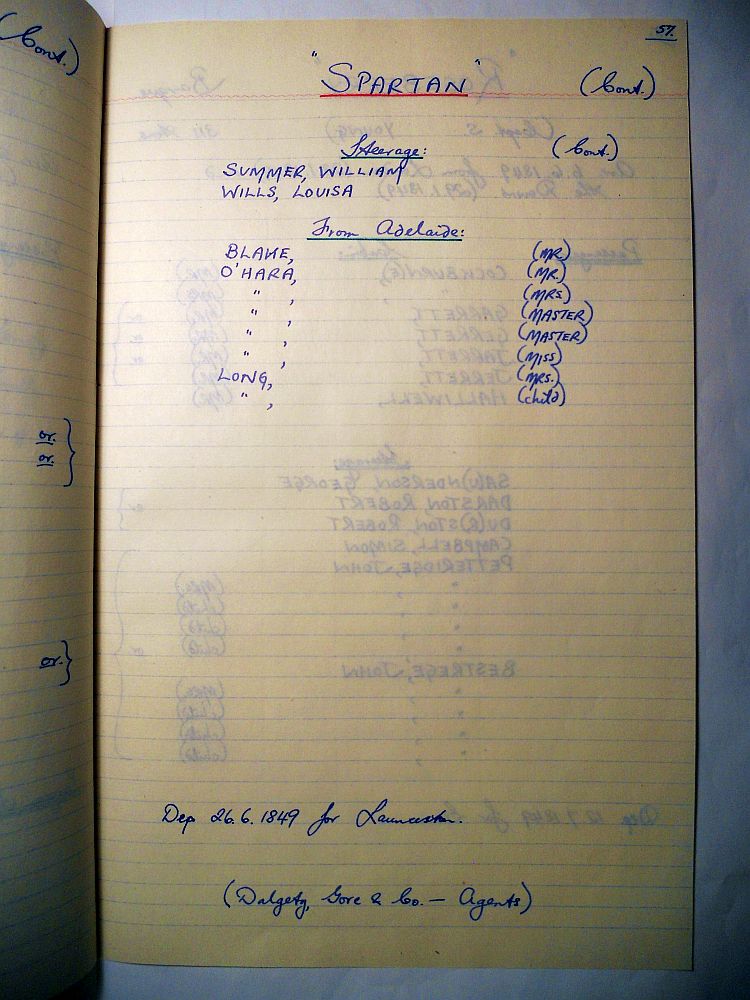 (Cont.)
57.
"SPARTAN" (Cont.)
Steerage: (Cont.)
SUMMER, WILLIAM
WILLS, LOUISA
From Adelaide:
BLAKE, (MR.)
O'HARA, (MR.)
" , (MRS)
" , (MASTER)
" , (MASTER)
" , (MISS)
LONG, (MRS.)
" , (child)
or.
or.
or.
Dep 26.6.1849 for Launceston.
(Dalgety, Gore & Co. — Agents)